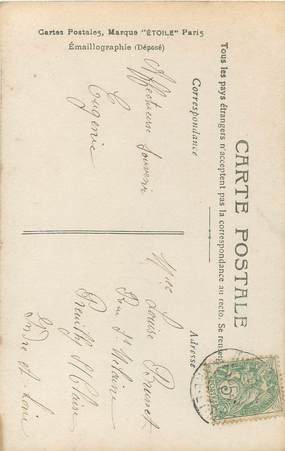 Cartes Postales, Marque "ÉTOILE" Paris
Émaillographie (Déposé)
CARTE POSTALE
Tous les pays étrangers n'acceptent pas la correspondance au recto. Se renseigner
Correspondance
Adresse
Affectueux souvenir
Eugénie
Mlle Louise Brunet
Rue St Hilaire
Preuilly s/ Claise
Indre et Loire
5